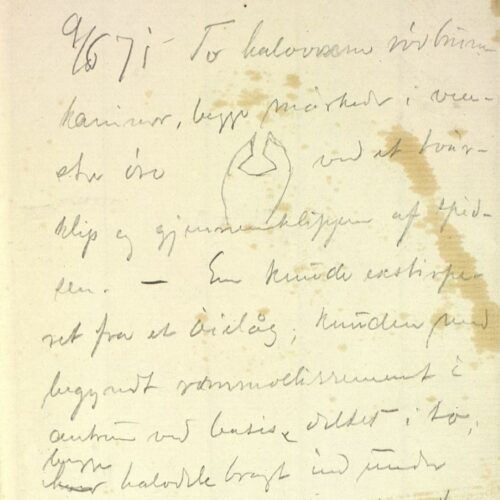 9/6 71- To halvvoxne rødbrune
kaniner, begge mærkede i ven-
stre øre ved et tvær-
klip og gjennemklippen af spid-
sen. — En knude exstirpe-
ret fra et øielåg; knuden med
begyndt rammollissement i
centrum ved basis, deltes i to,
begge halvdele bragt ind under